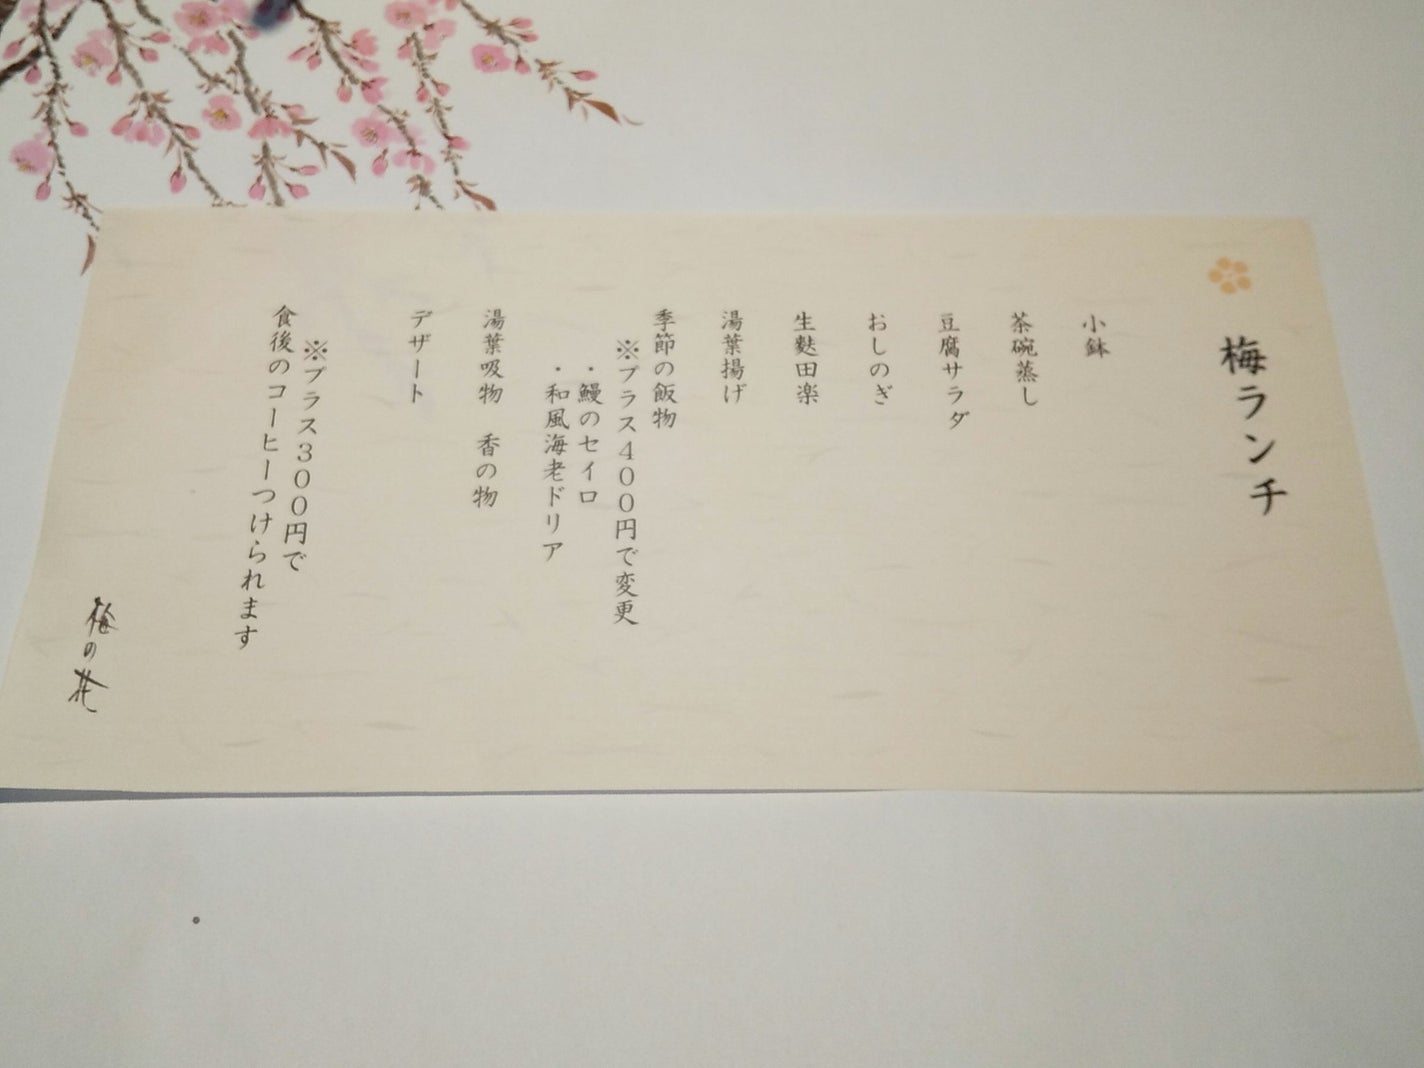 梅ランチ
小鉢
茶碗蒸し
豆腐サラダ
おしのぎ
生麩田楽
湯葉揚げ
季節の飯物
※プラス400円で変更
・鰻のセイロ
・和風海老ドリア
湯葉吸物　香の物
デザート
※プラス300円で
食後のコーヒーつけられます
梅の花